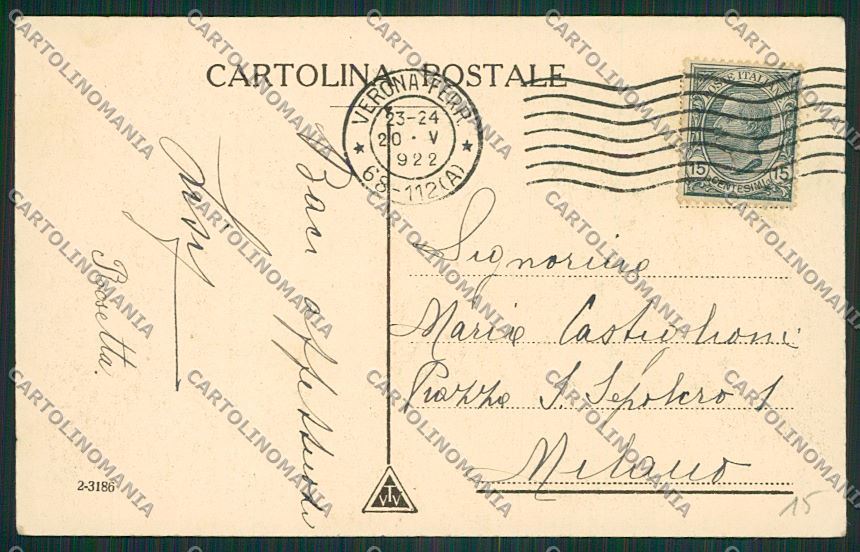 CARTOLINA POSTALE
VERONA FERR.
23-24
20 · V
922
68-112(A)
POSTE ITALIANE
15 15
CENTESIMI
Baci affettuosi
Rosetta.
Signorina
Maria Castiglioni
Piazza S. Sepolcro 1
Milano
2-3186
VTV
15
CARTOLINOMANIA